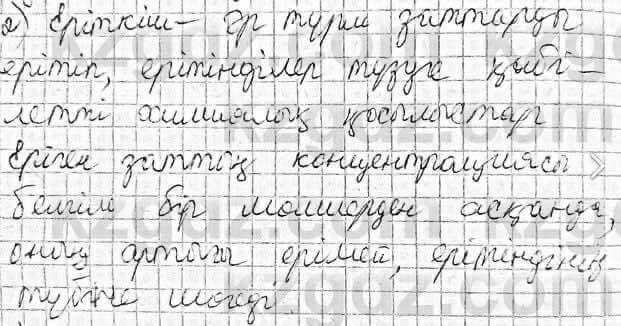 2) Еріткіш – әр түрлі заттарды
ерітіп, ерітінділер түзуге қабі-
летті химиялық қосылыстар
Еріген заттың концентрациясы
белгілі бір мөлшерден асқанда,
оның артығы ерімей, ерітіндінің
түбіне шөгеді.